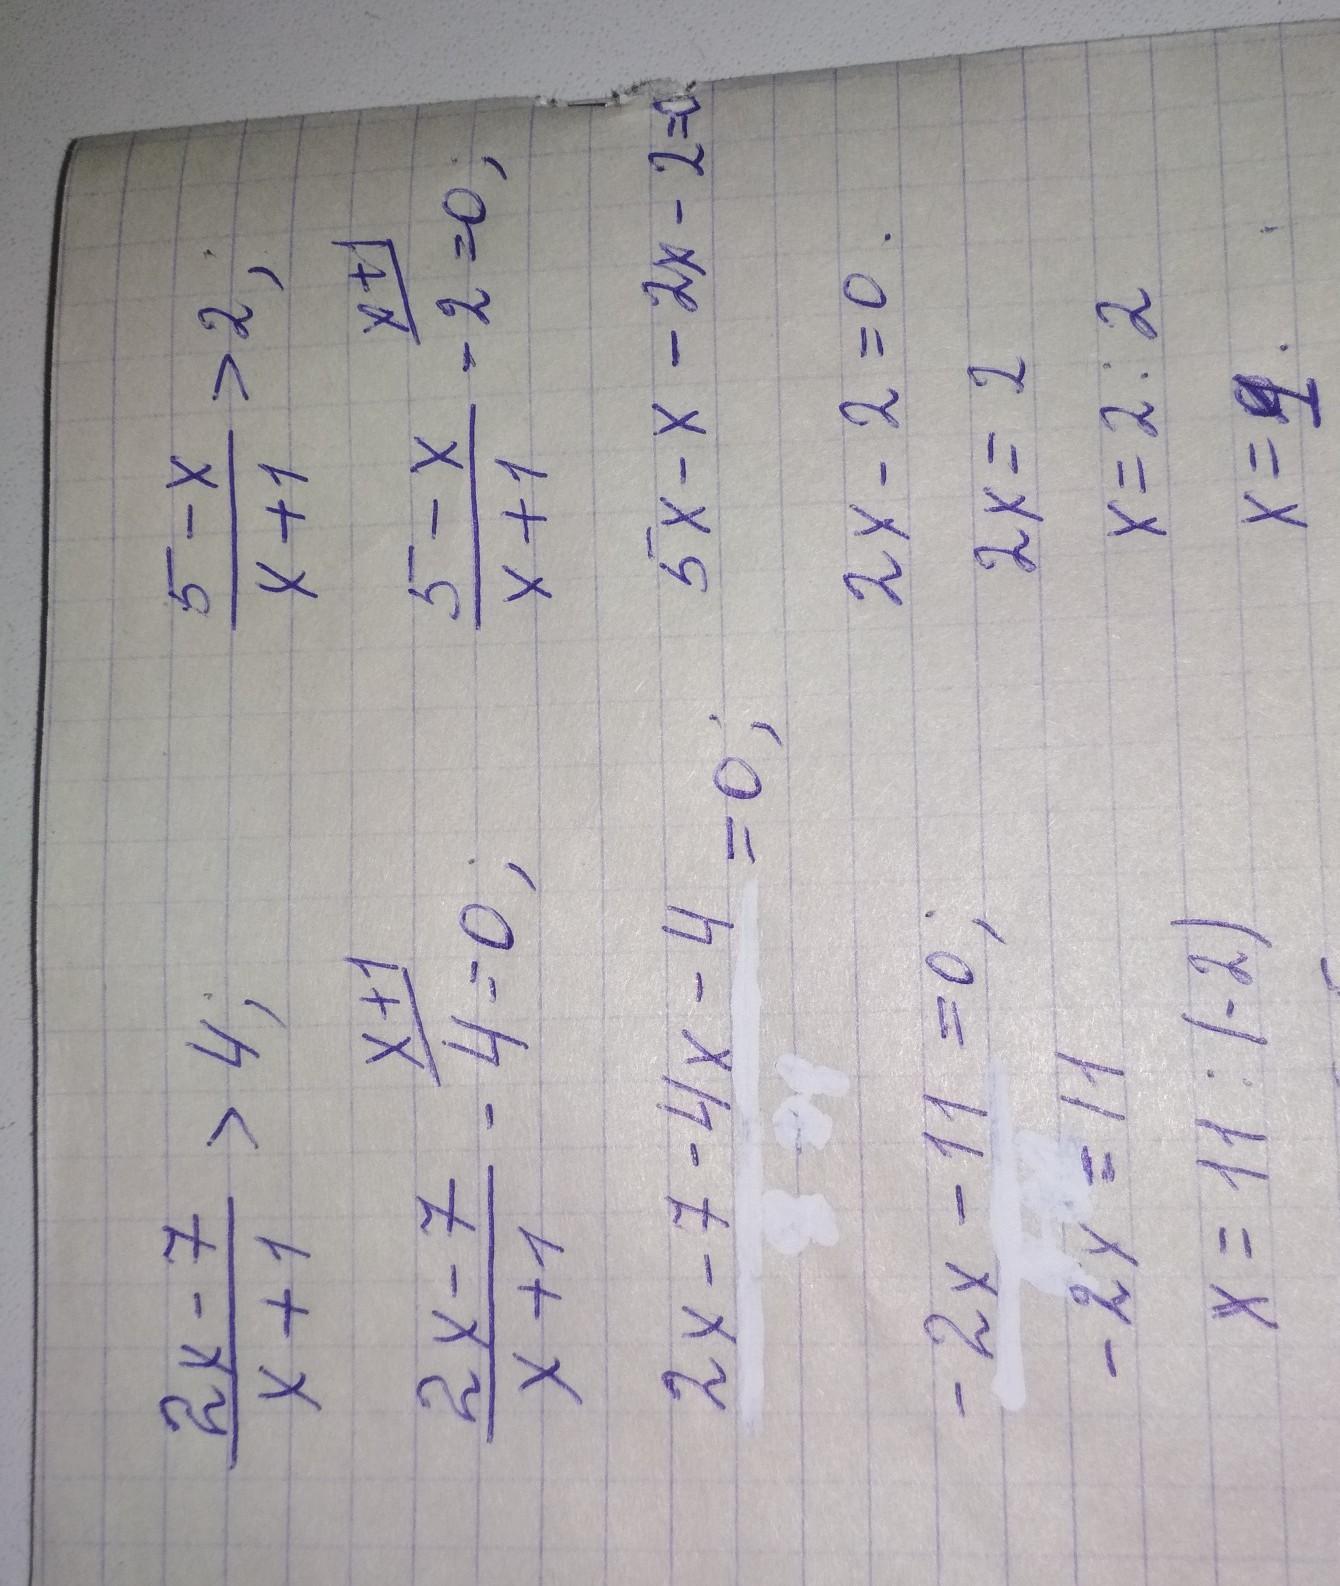 2x-7/x+1 > 4;
2x-7/x+1 - 4 = 0; x+1
2x - 7 - 4x - 4 = 0;
-2x - 11 = 0;
-2x = 11
x = 11 : (-2)
5-x/x+1 > 2;
5-x/x+1 - 2 = 0; x+1
5x - x - 2x - 2 = 0
2x - 2 = 0.
2x = 2
x = 2 : 2
x = 1.